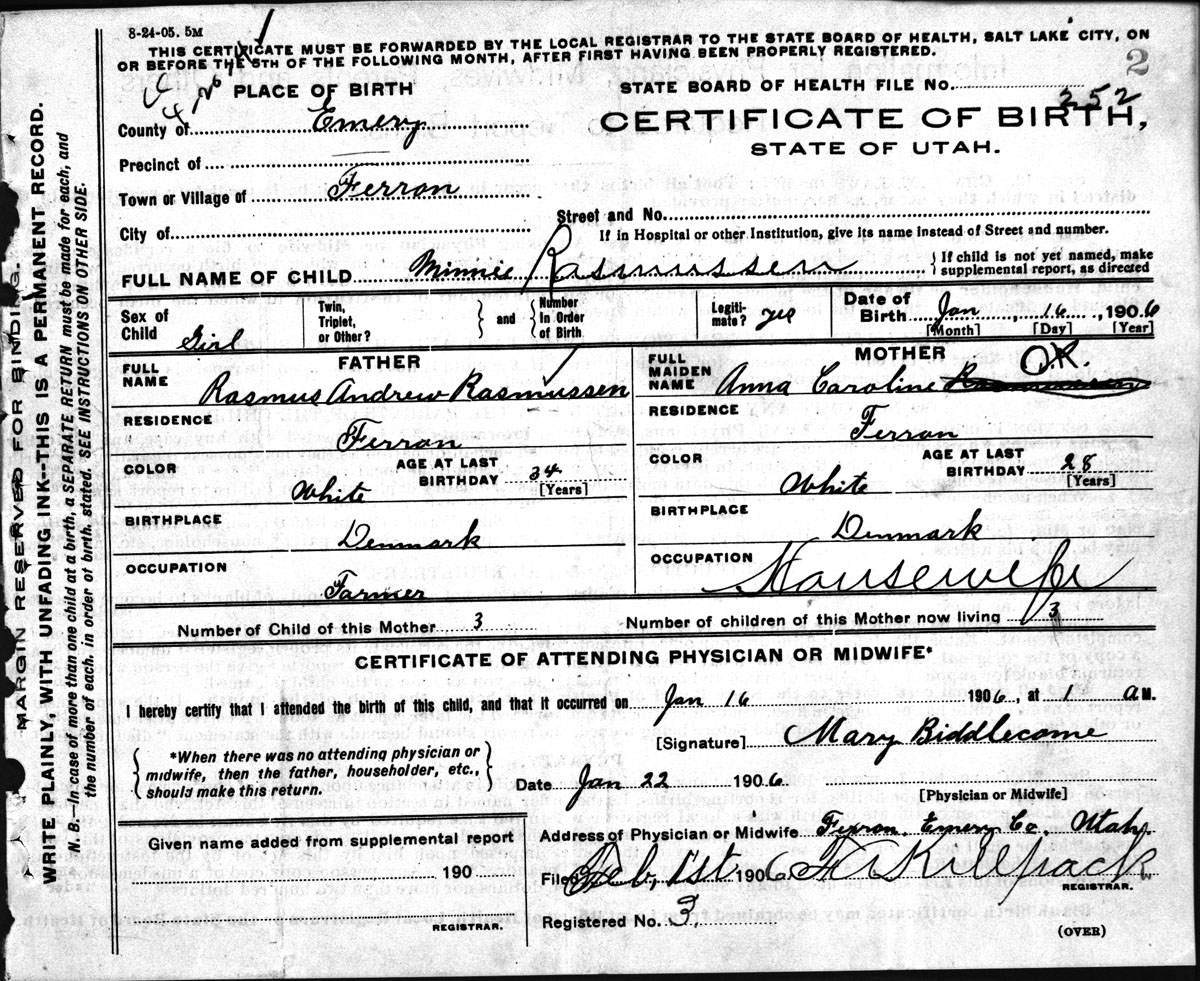 8-24-05. 5M
THIS CERTIFICATE MUST BE FORWARDED BY THE LOCAL REGISTRAR TO THE STATE BOARD OF HEALTH, SALT LAKE CITY, ON
OR BEFORE THE 5TH OF THE FOLLOWING MONTH, AFTER FIRST HAVING BEEN PROPERLY REGISTERED.
2
PLACE OF BIRTH
STATE BOARD OF HEALTH FILE NO. 252
County of Emery
CERTIFICATE OF BIRTH,
STATE OF UTAH.
Precinct of
Town or Village of Ferron
Street and No.
City of
If in Hospital or other Institution, give its name instead of Street and number.
FULL NAME OF CHILD Minnie Rasmussen
If child is not yet named, make
supplemental report, as directed
Sex of Child Girl
Twin, Triplet, or Other?
and
Number In Order of Birth
Legiti-mate? yes
Date of Birth Jan 16, 1906
[Month] [Day] [Year]
FATHER
FULL NAME Rasmus Andrew Rasmussen
RESIDENCE Ferron
COLOR White
AGE AT LAST BIRTHDAY 34
[Years]
BIRTHPLACE Denmark
OCCUPATION Farmer
MOTHER
O.K.
FULL MAIDEN NAME Anna Caroline
RESIDENCE Ferron
COLOR White
AGE AT LAST BIRTHDAY 28
[Years]
BIRTHPLACE Denmark
OCCUPATION Housewife
Number of Child of this Mother 3
Number of children of this Mother now living 3
CERTIFICATE OF ATTENDING PHYSICIAN OR MIDWIFE*
I hereby certify that I attended the birth of this child, and that it occurred on Jan 16 1906, at 1 A M.
*When there was no attending physician or
midwife, then the father, householder, etc.,
should make this return.
[Signature] Mary Biddlecome
Date Jan 22 1906
[Physician or Midwife]
Given name added from supplemental report
190
REGISTRAR.
Address of Physician or Midwife Ferron, Emery Co, Utah.
Filed Feb, 1st 1906
REGISTRAR.
Registered No. 3,
(OVER)
MARGIN RESERVED FOR BINDING.
WRITE PLAINLY, WITH UNFADING INK--THIS IS A PERMANENT RECORD.
N. B.--In case of more than one child at a birth, a SEPARATE RETURN must be made for each, and
the number of each, in order of birth, stated. SEE INSTRUCTIONS ON OTHER SIDE.